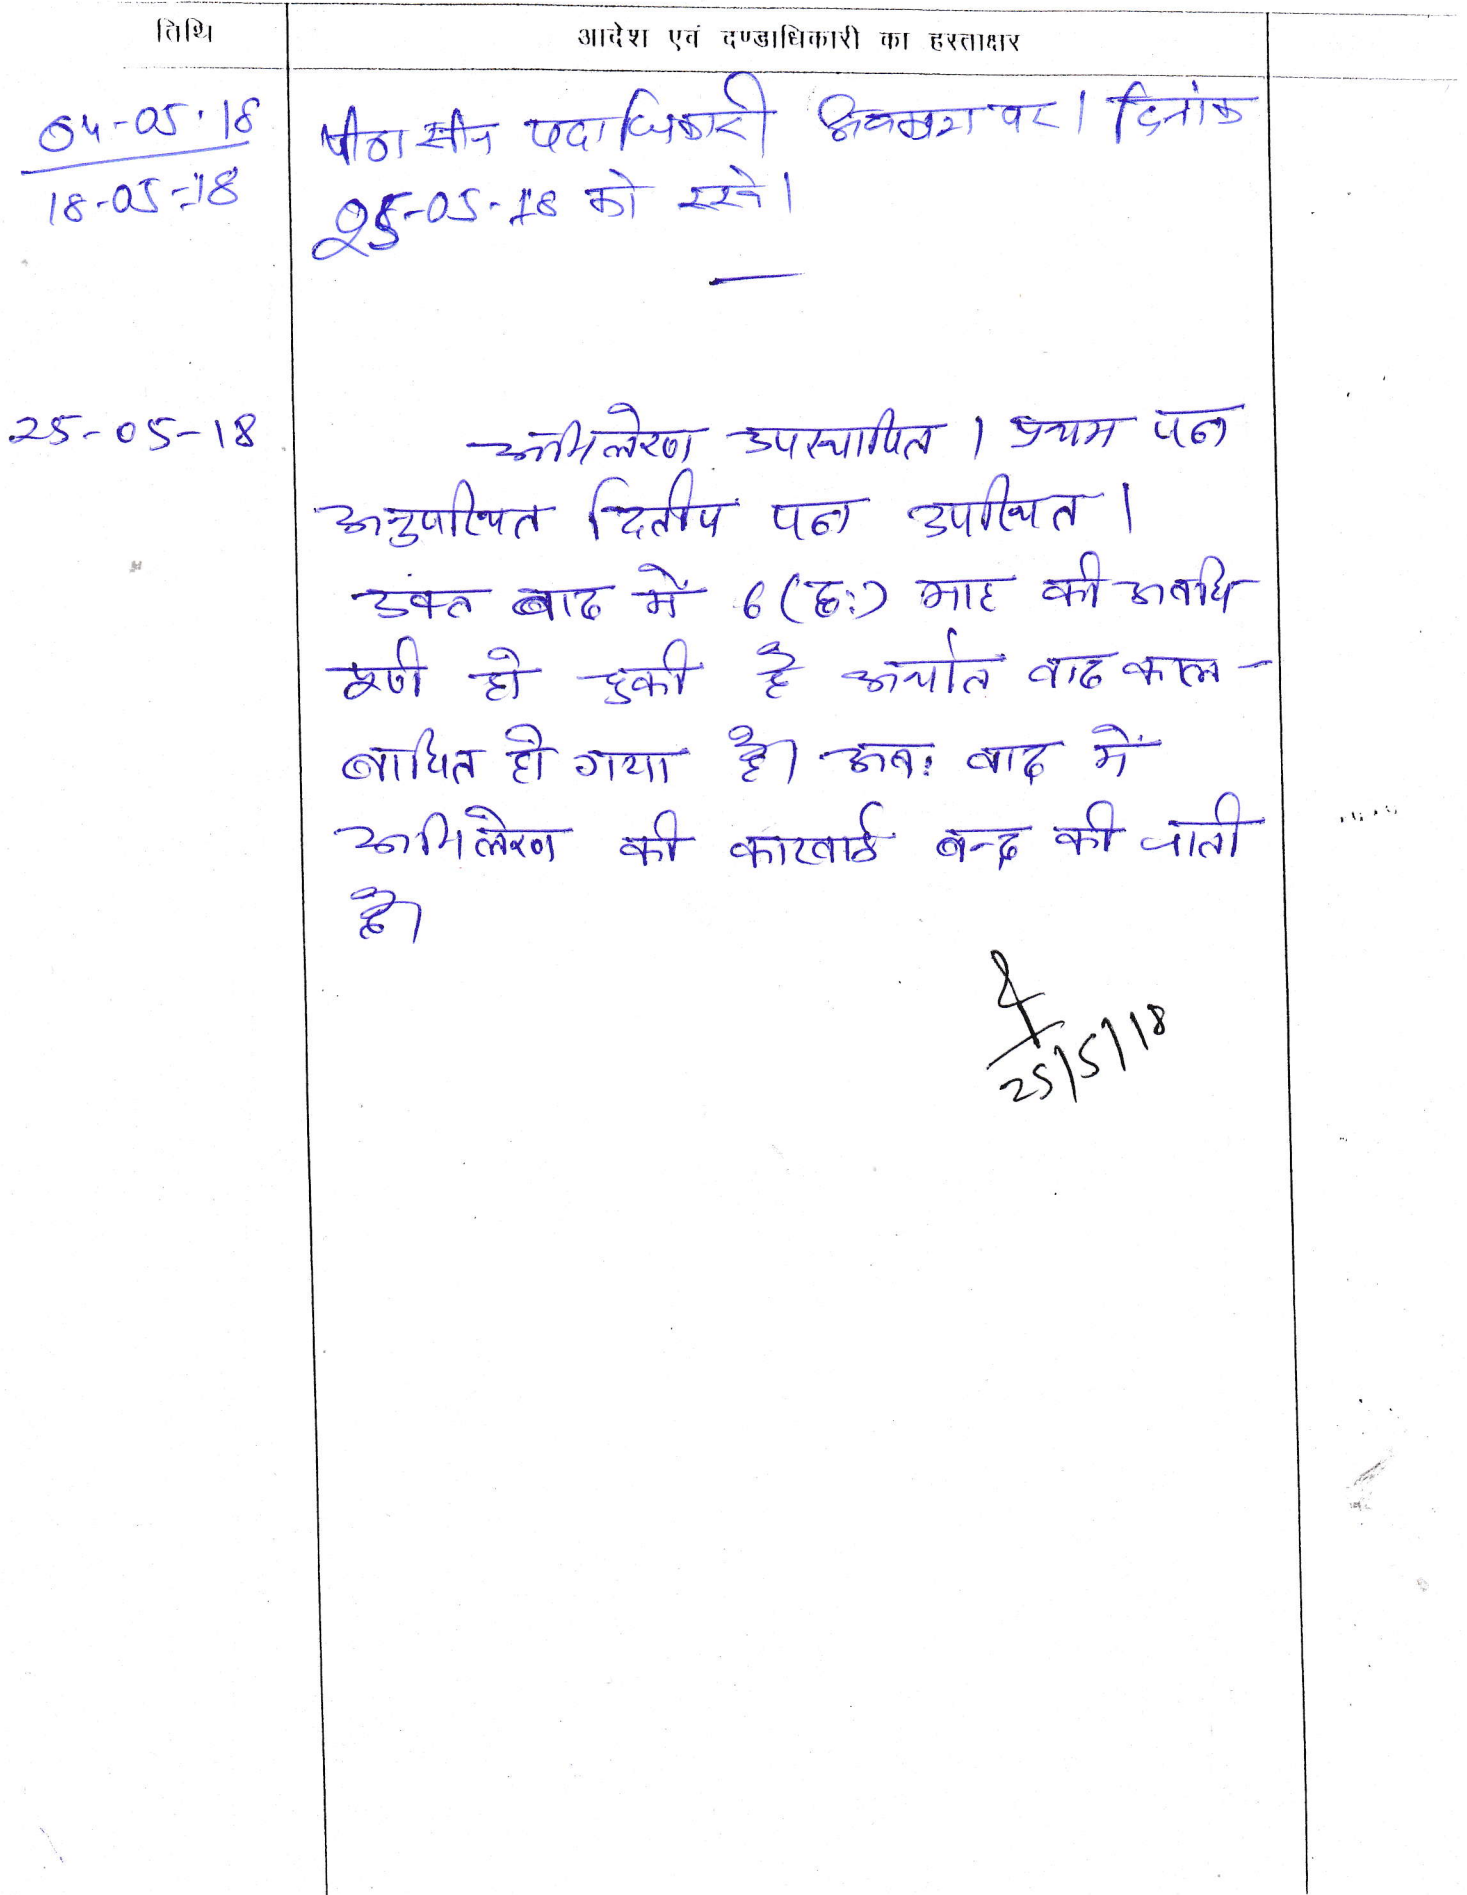 तिथि
आदेश एवं दण्डाधिकारी का हस्ताक्षर
04-05-18
पीठासीन पदाधिकारी अवकाश पर। दिनांक
18-05-18
25-05-18 को रखें।
25-05-18
अभिलेख उपस्थापित। प्रथम पक्ष
अनुपस्थित द्वितीय पक्ष उपस्थित।
उक्त वाद में 6 (छः) माह की अवधि
पूर्ण हो चुकी है अर्थात वाद काल-
बाधित हो गया है। अतः वाद में
अभिलेख की कारवाई बन्द की जाती
है।
25/5/18